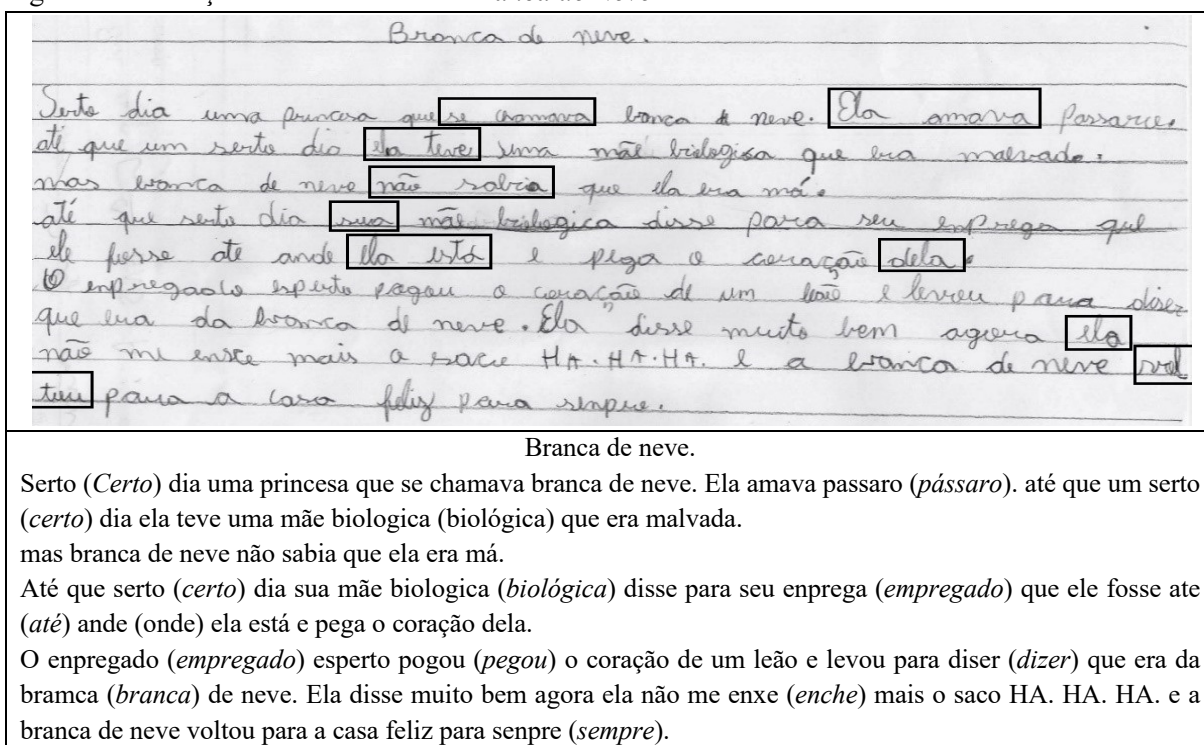 Branca de neve.
Serto dia uma princesa que se chamava branca de neve. Ela amava Passaro.
até que um serto dia ela teve uma mãe biologica que era malvada.
mas branca de neve não sabia que ela era má.
até que serto dia sua mãe biologica disse para seu enprega que
ele fosse ate ande ela está e pega o coração dela.
O enpregado esperto pogou o coração de um leão e levou para diser
que era da bramca de neve. Ela disse muito bem agora ela
não me mais o saco HA. HA. HA. e a branca de neve vol
tou para a casa feliz para senpre.
Branca de neve.
Serto (Certo) dia uma princesa que se chamava branca de neve. Ela amava passaro (pássaro). até que um serto
(certo) dia ela teve uma mãe biologica (biológica) que era malvada.
mas branca de neve não sabia que ela era má.
Até que serto (certo) dia sua mãe biologica (biológica) disse para seu enprega (empregado) que ele fosse ate
(até) ande (onde) ela está e pega o coração dela.
O enpregado (empregado) esperto pogou (pegou) o coração de um leão e levou para diser (dizer) que era da
bramca (branca) de neve. Ela disse muito bem agora ela não me enxe (enche) mais o saco HA. HA. HA. e a
branca de neve voltou para a casa feliz para senpre (sempre).